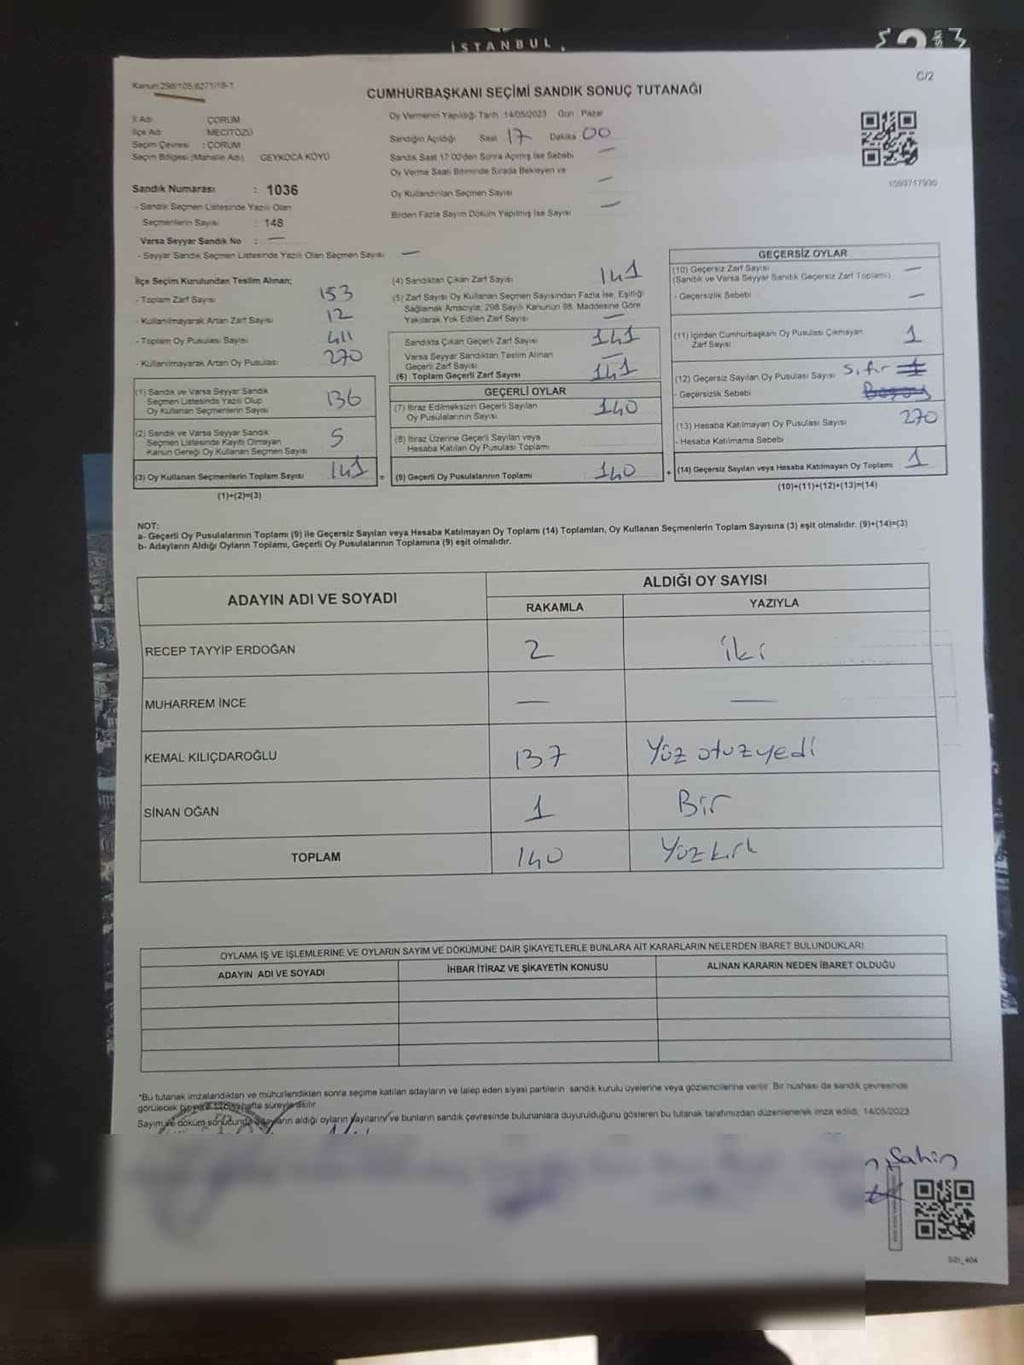 İSTANBUL
Kanun:298/105,6271/18-1
C/2
CUMHURBAŞKANI SEÇİMİ SANDIK SONUÇ TUTANAĞI
İl Adı : ÇORUM
İlçe Adı : MECİTÖZÜ
Seçim Çevresi : ÇORUM
Seçim Bölgesi (Mahalle Adı) GEYKOCA KÖYÜ
Sandık Numarası : 1036
- Sandık Seçmen Listesinde Yazılı Olan
Seçmenlerin Sayısı : 148
Varsa Seyyar Sandık No : —
- Seyyar Sandık Seçmen Listesinde Yazılı Olan Seçmen Sayısı —
Oy Vermenin Yapıldığı Tarih 14/05/2023 Gün Pazar
Sandığın Açıldığı Saat 17 Dakika 00
Sandık Saat 17:00'den Sonra Açılmış İse Sebebi —
Oy Verme Saati Bitiminde Sırada Bekleyen ve
Oy Kullandırılan Seçmen Sayısı —
Birden Fazla Sayım Döküm Yapılmış İse Sayısı —
1593717930
İlçe Seçim Kurulundan Teslim Alınan;
- Toplam Zarf Sayısı 153
- Kullanılmayarak Artan Zarf Sayısı 12
- Toplam Oy Pusulası Sayısı 411
- Kullanılmayarak Artan Oy Pusulası 270
(1) Sandık ve Varsa Seyyar Sandık
Seçmen Listesinde Yazılı Olup
Oy Kullanan Seçmenlerin Sayısı 136
(2) Sandık ve Varsa Seyyar Sandık
Seçmen Listesinde Kayıtlı Olmayan
Kanun Gereği Oy Kullanan Seçmen Sayısı 5
(3) Oy Kullanan Seçmenlerin Toplam Sayısı 141
(1)+(2)=(3)
(4) Sandıktan Çıkan Zarf Sayısı 141
(5) Zarf Sayısı Oy Kullanan Seçmen Sayısından Fazla İse, Eşitliği
Sağlamak Amacıyla, 298 Sayılı Kanunun 98. Maddesine Göre
Yakılarak Yok Edilen Zarf Sayısı —
Sandıkta Çıkan Geçerli Zarf Sayısı 141
Varsa Seyyar Sandıktan Teslim Alınan
Geçerli Zarf Sayısı —
(6) Toplam Geçerli Zarf Sayısı 141
GEÇERLİ OYLAR
(7) İtiraz Edilmeksizin Geçerli Sayılan
Oy Pusulalarının Sayısı 140
(8) İtiraz Üzerine Geçerli Sayılan veya
Hesaba Katılan Oy Pusulası Toplamı
= (9) Geçerli Oy Pusulalarının Toplamı 140
GEÇERSİZ OYLAR
(10) Geçersiz Zarf Sayısı —
(Sandık ve Varsa Seyyar Sandık Geçersiz Zarf Toplamı)
- Geçersizlik Sebebi —
(11) İçinden Cumhurbaşkanı Oy Pusulası Çıkmayan
Zarf Sayısı 1
(12) Geçersiz Sayılan Oy Pusulası Sayısı Sıfır
- Geçersizlik Sebebi
(13) Hesaba Katılmayan Oy Pusulası Sayısı 270
- Hesaba Katılmama Sebebi
+ (14) Geçersiz Sayılan veya Hesaba Katılmayan Oy Toplamı 1
(10)+(11)+(12)+(13)=(14)
NOT:
a- Geçerli Oy Pusulalarının Toplamı (9) ile Geçersiz Sayılan veya Hesaba Katılmayan Oy Toplamı (14) Toplamları, Oy Kullanan Seçmenlerin Toplam Sayısına (3) eşit olmalıdır. (9)+(14)=(3)
b- Adayların Aldığı Oyların Toplamı, Geçerli Oy Pusulalarının Toplamına (9) eşit olmalıdır.
ADAYIN ADI VE SOYADI
ALDIĞI OY SAYISI
RAKAMLA YAZIYLA
RECEP TAYYİP ERDOĞAN 2 iki
MUHARREM İNCE — —
KEMAL KILIÇDAROĞLU 137 Yüz otuzyedi
SİNAN OĞAN 1 Bir
TOPLAM 140 Yüzkırk
OYLAMA İŞ VE İŞLEMLERİNE VE OYLARIN SAYIM VE DÖKÜMÜNE DAİR ŞİKAYETLERLE BUNLARA AİT KARARLARIN NELERDEN İBARET BULUNDUKLARI
ADAYIN ADI VE SOYADI İHBAR İTİRAZ VE ŞİKAYETİN KONUSU ALINAN KARARIN NEDEN İBARET OLDUĞU
*Bu tutanak imzalandıktan ve mühürlendikten sonra seçime katılan adayların ve talep eden siyasi partilerin sandık kurulu üyelerine veya gözlemcilerine verilir. Bir nüshası da sandık çevresinde
görülecek bir yere 1 hafta süreyle asılır.
Sayım ve döküm sonucunda adayların aldığı oyların sayılarını ve bunların sandık çevresinde bulunanlara duyurulduğunu gösteren bu tutanak tarafımızdan düzenlenerek imza edildi. 14/05/2023
Şahin